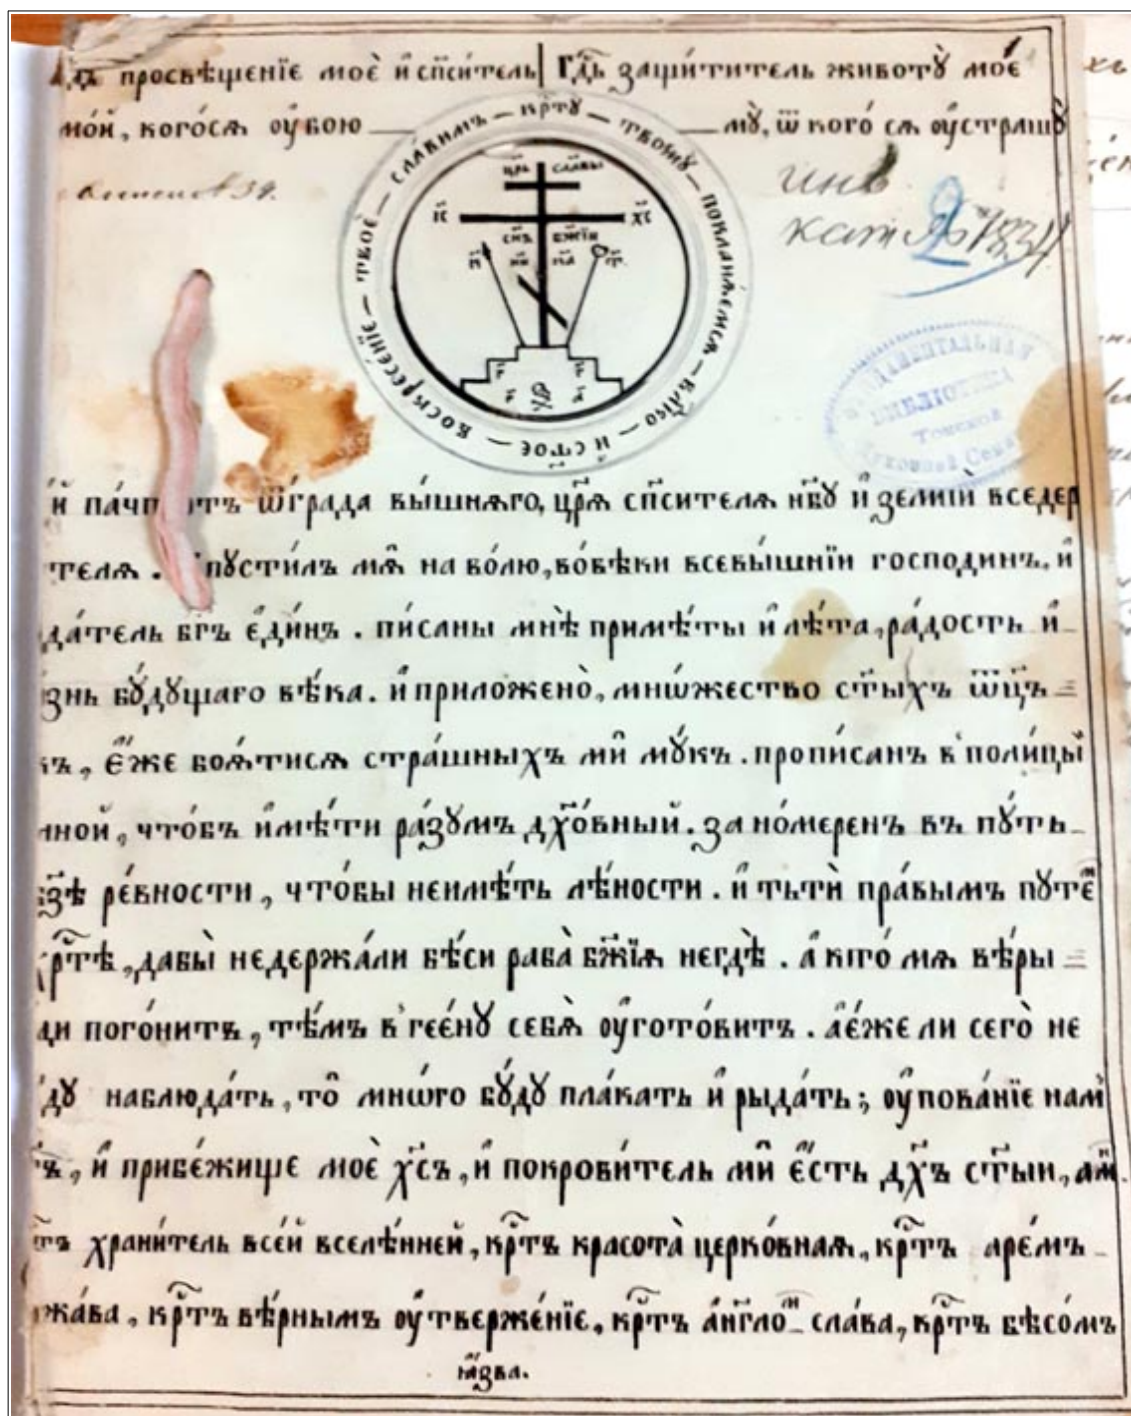 просвѣщенїе моѐ и҆ сп҃си́тель | Гд҇ь защи́титель животꙋ̀ мое
мо́й, кого́сѧ оу҆бою — мꙋ̀, ѿ кого́ сѧ оу҆страшꙋ̀
крт҇ꙋ̀ — твоемꙋ̀ — покланѧ́емсѧ — влⷣко — и҆ ст҃ое — воскресе́нїе — твоѐ — сла́вимъ
црь сла́вы
і҃с х҃с
сн҃ъ бж҃їи
инв
кат № 1834
2
Фундаментальная
Библіотека
Томской
Духовной Сем
и҆ па́чпортъ ѿгра́да вы́шнѧго, цр҃ѧ сп҃сителѧ нб҃ꙋ и҆ земли́й вседер
телѧ. пꙋсти́лъ мѧ̀ на во́лю, во́вѣки всевы́шнїи господинъ. и҆
да́тель бг҃ъ є҆ди́нъ. пи́саны мнѣ̀ примѣ́ты и҆ лѣ́та, ра́дость и҆
знь бꙋ́дꙋщаго вѣ́ка. и҆ приложено̀, мнѡ́жество ст҃ы́хъ ѿц҃ъ
къ, є҆́же боѧ́тисѧ стра́шныхъ мѝ мꙋ́къ. пропи́санъ в̾ поли́цыї
мной, что́бъ и҆мѣ́ти ра́зꙋмъ дх҃о́вный. за но́меренъ въ пꙋ́ть
бз҃ѣ ре́вности, что́бы неимѣ́ть лѣ́ности. и҆ тьтѝ пра́вымъ пꙋте́
крт҇ѣ, дабы̀ недержа́ли бѣ́си раба̀ бж҃їѧ негдѣ̀. а҆ кто́ мѧ вѣ́ры
ди пого́нитъ, тѣ́мъ в̾ гее́нꙋ себѧ̀ оу҆гото́витъ. а҆е́жели сего̀ не
дꙋ наблюда́ть, то̀ мнѡ́го бꙋ́дꙋ пла́кать и҆ рыда́ть; оу҆пова́нїе нам
ъ, и҆ прибе́жище моѐ хс҃ъ, и҆ покрови́тель мѝ є҆́сть дх҃ъ ст҃ыи, ам҃.
тъ храни́тель все́й вселе́нней, крт҇ъ красота̀ церко́внаѧ, крт҇ъ аре́мъ
жа́ва, крт҇ъ вѣ́рнымъ оу҆твержє́нїе, крт҇ъ а҆́нгломъ сла́ва, крт҇ъ бѣсо́мъ
ꙗ҆́зва.